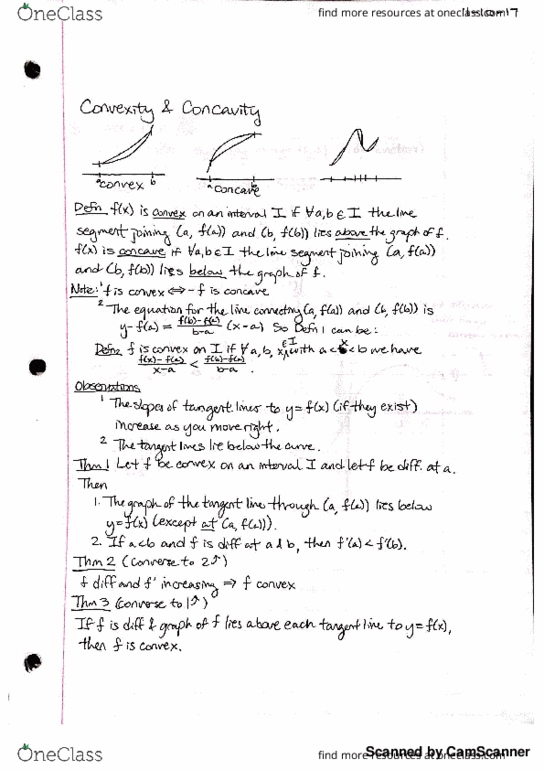 OneClass
find more resources at oneclass.com
Convexity & Concavity
a convex b
a concave b
Defn, f(x) is convex on an interval I if ∀a,b∈I the line
segment joining (a, f(a)) and (b, f(b)) lies above the graph of f.
f(x) is concave if ∀a,b∈I the line segment joining (a, f(a))
and (b, f(b)) lies below the graph of f.
Note: ¹ f is convex ⟺ -f is concave
² The equation for the line connecting (a, f(a)) and (b, f(b)) is
y-f(a) = f(b)-f(a)/b-a (x-a) So Defn 1 can be:
Defn2 f is convex on I if ∀a,b,x∈I with a<x<b we have
f(x)-f(a)/x-a < f(b)-f(a)/b-a.
Observations
¹ The slopes of tangent lines to y=f(x) (if they exist)
increase as you move right.
² The tangent lines lie below the curve.
Thm 1 Let f be convex on an interval I and let f be diff at a.
Then
1. The graph of the tangent line through (a, f(a)) lies below
y=f(x) (except at (a, f(a))).
2. If a<b and f is diff at a & b, then f'(a)<f'(b).
Thm 2 (Converse to 2↗)
f diff and f' increasing ⟹ f convex
Thm 3 (Converse to 1↗)
If f is diff & graph of f lies above each tangent line to y=f(x),
then f is convex.
OneClass
find more resources at oneclass.com
Scanned by CamScanner